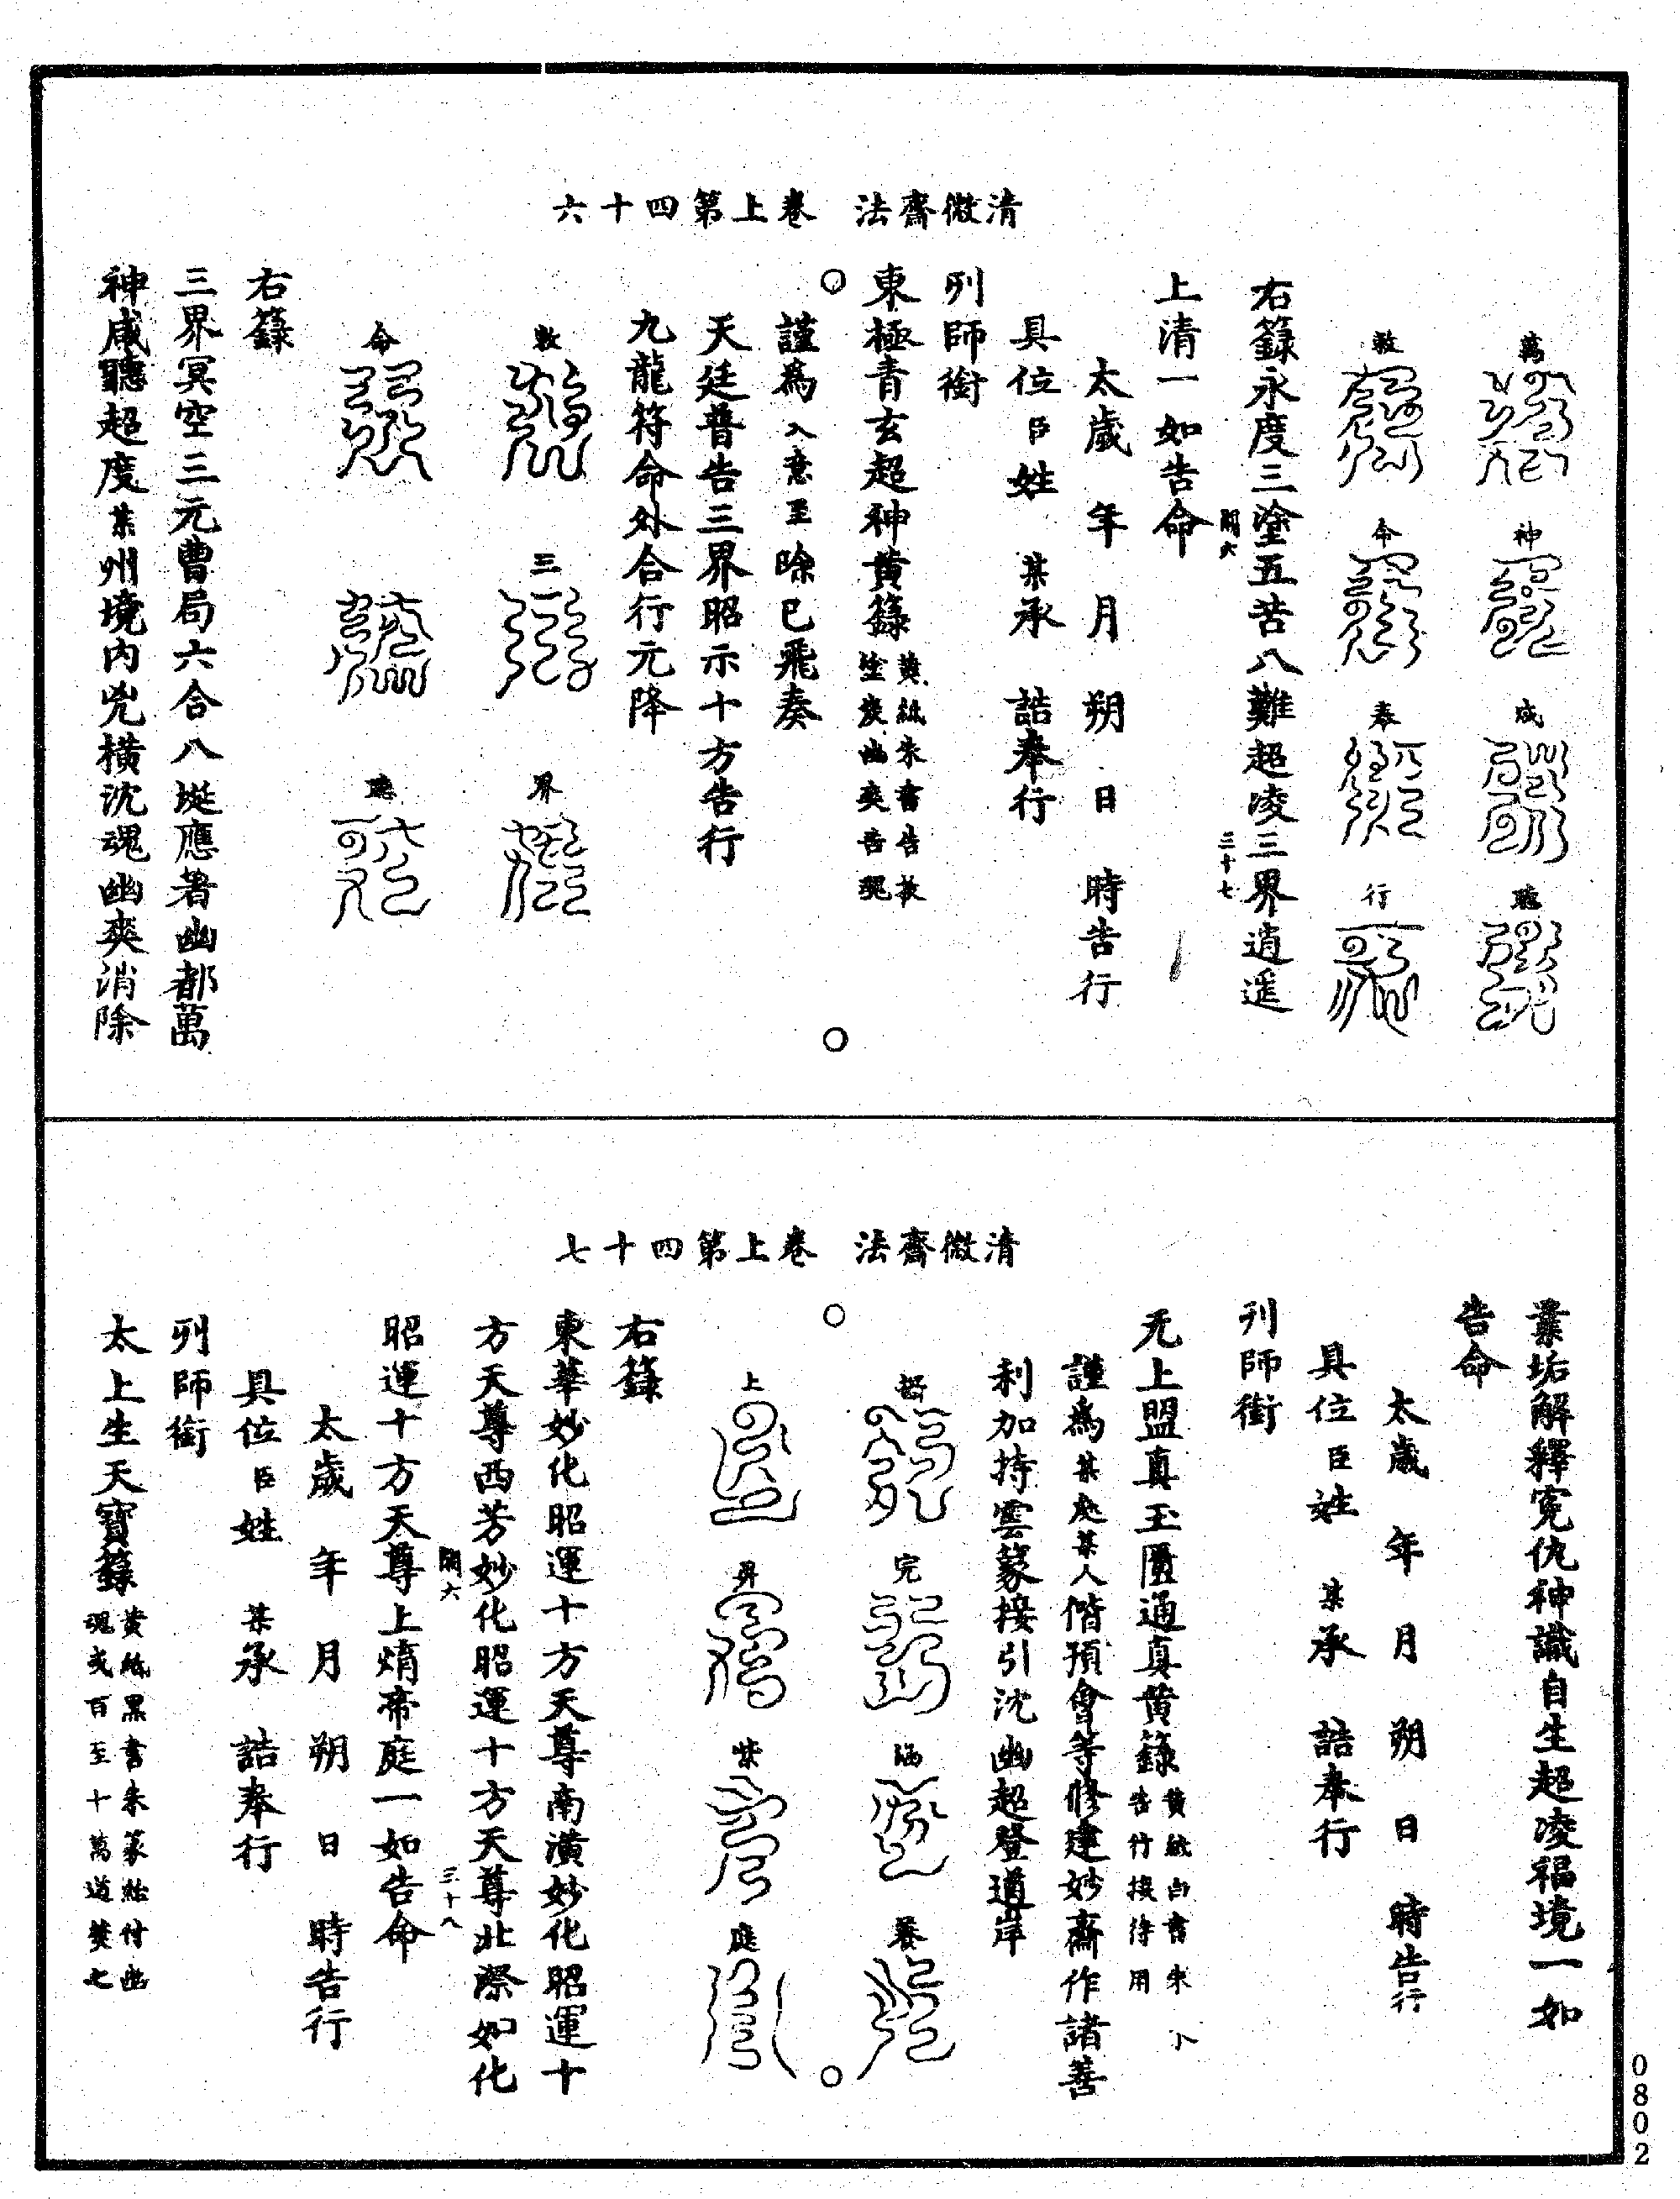 清微齋法　卷上第四十六
萬　神　咸　聽
敕　命　奉　行
右籙永度三塗五苦八難超凌三界逍遥
開六　三十七
上清一如告命
太歲　年　月　朔　日　時告行
具位臣姓　某承　誥奉行
列師銜
東極青玄超神黃籙黃紙朱書告拔塗炭幽爽苦魂
謹爲入意至除已飛奏
天廷普告三界昭示十方告行
九龍符命外合行元降
敕　三　界
命　　聽
右籙
三界冥空三元曹局六合八埏應著幽都萬
神咸聽超度某州境内兇橫沈魂幽爽消除
清微齋法　卷上第四十七
業垢解釋寃仇神識自生超凌福境一如
告命
太歲　年　月　朔　日　時告行
具位臣姓　某承　誥奉行
列師銜
无上盟真玉匱通真黃籙黃紙白書朱　告竹接待用
謹爲某處某人偕預會等修建妙齋作諸善
利加持雲篆接引沈幽超登道岸
完　養
上　昇　紫　庭
右籙
東華妙化昭運十方天尊南瀵妙化昭運十
方天尊西芳妙化昭運十方天尊北際妙化
開六　三十八
昭運十方天尊上煟帝庭一如告命
太歲　年　月　朔　日　時告行
具位臣姓　某承　誥奉行
列師銜
太上生天寶籙黃紙黑書朱篆給付幽魂或百至十萬道焚七
0802